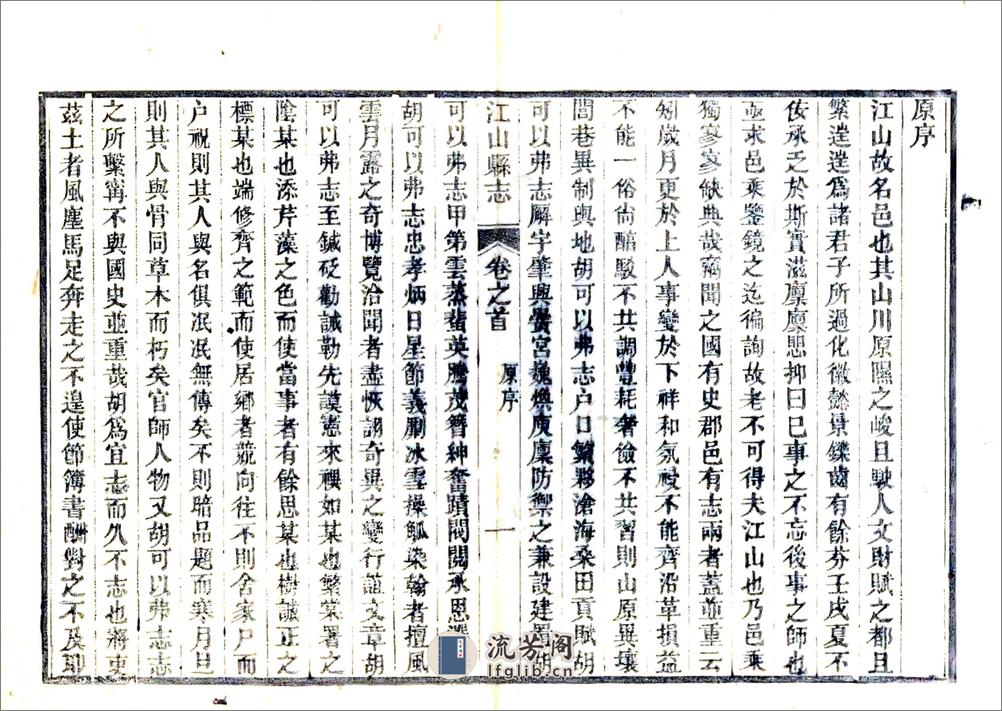 原序
江山故名邑也其山川原隰之峻且駛人文財賦之都且
繁逬逬爲諸君子所過化徽懿景鑠齒有餘芬壬戌夏不
佞承乏於斯實滋廩廩思抑曰已事之不忘後事之師也
亟求邑乘鑒鏡之迄徧詢故老不可得夫江山也乃邑乘
獨寥寥缺典哉竊聞之國有史郡邑有志兩者蓋並重云
矧歲月更於上人事變於下祥和氛祲不能齊沿革損益
不能一俗尙醕駁不共調豐耗奢儉不共習則山原異壤
閭巷異制輿地胡可以弗志户口繁夥滄海桑田貢賦胡
可以弗志廨宇肇興黌宮巍煥庾廩防禦之兼設建置胡
江山縣志
卷之首
原序
一
可以弗志甲第雲蒸蜚英騰茂簪紳奮蹟閥閱承恩選
胡可以弗志忠孝炳日星節義勵冰雪操觚染翰者擅風
雲月露之奇博覽洽聞者盡恢詭奇異之變行誼文章胡
可以弗志至鍼砭勸誡勒先謨憲來禩如某也繁棠署之
陰某也添芹藻之色而使當事者有餘思某也樹誠正之
標某也端修齊之範而使居鄉者競向往不則舍家尸而
户祝則其人與名俱泯泯無傳矣不則暗品題而寒月旦
則其人與骨同草木而朽矣官師人物又胡可以弗志志
之所繫甯不與國史並重哉胡爲宜志而久不志也將吏
茲土者風塵馬足奔走之不遑使節簿書酬對之不及抑
流芳阁
lfglib.com